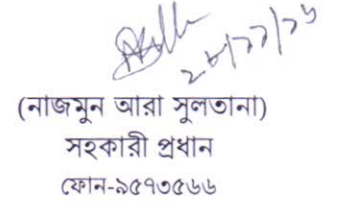 ২৮/১১/১৬
(নাজমুন আরা সুলতানা)
সহকারী প্রধান
ফোন-৯৫৭৩৫৬৬